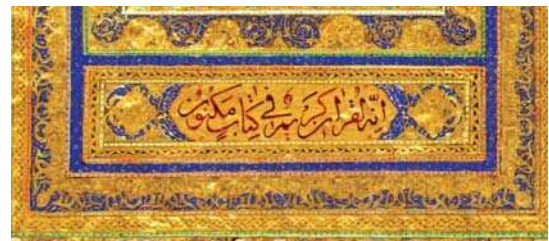 انه لقرآن كريم في كتاب مكنون